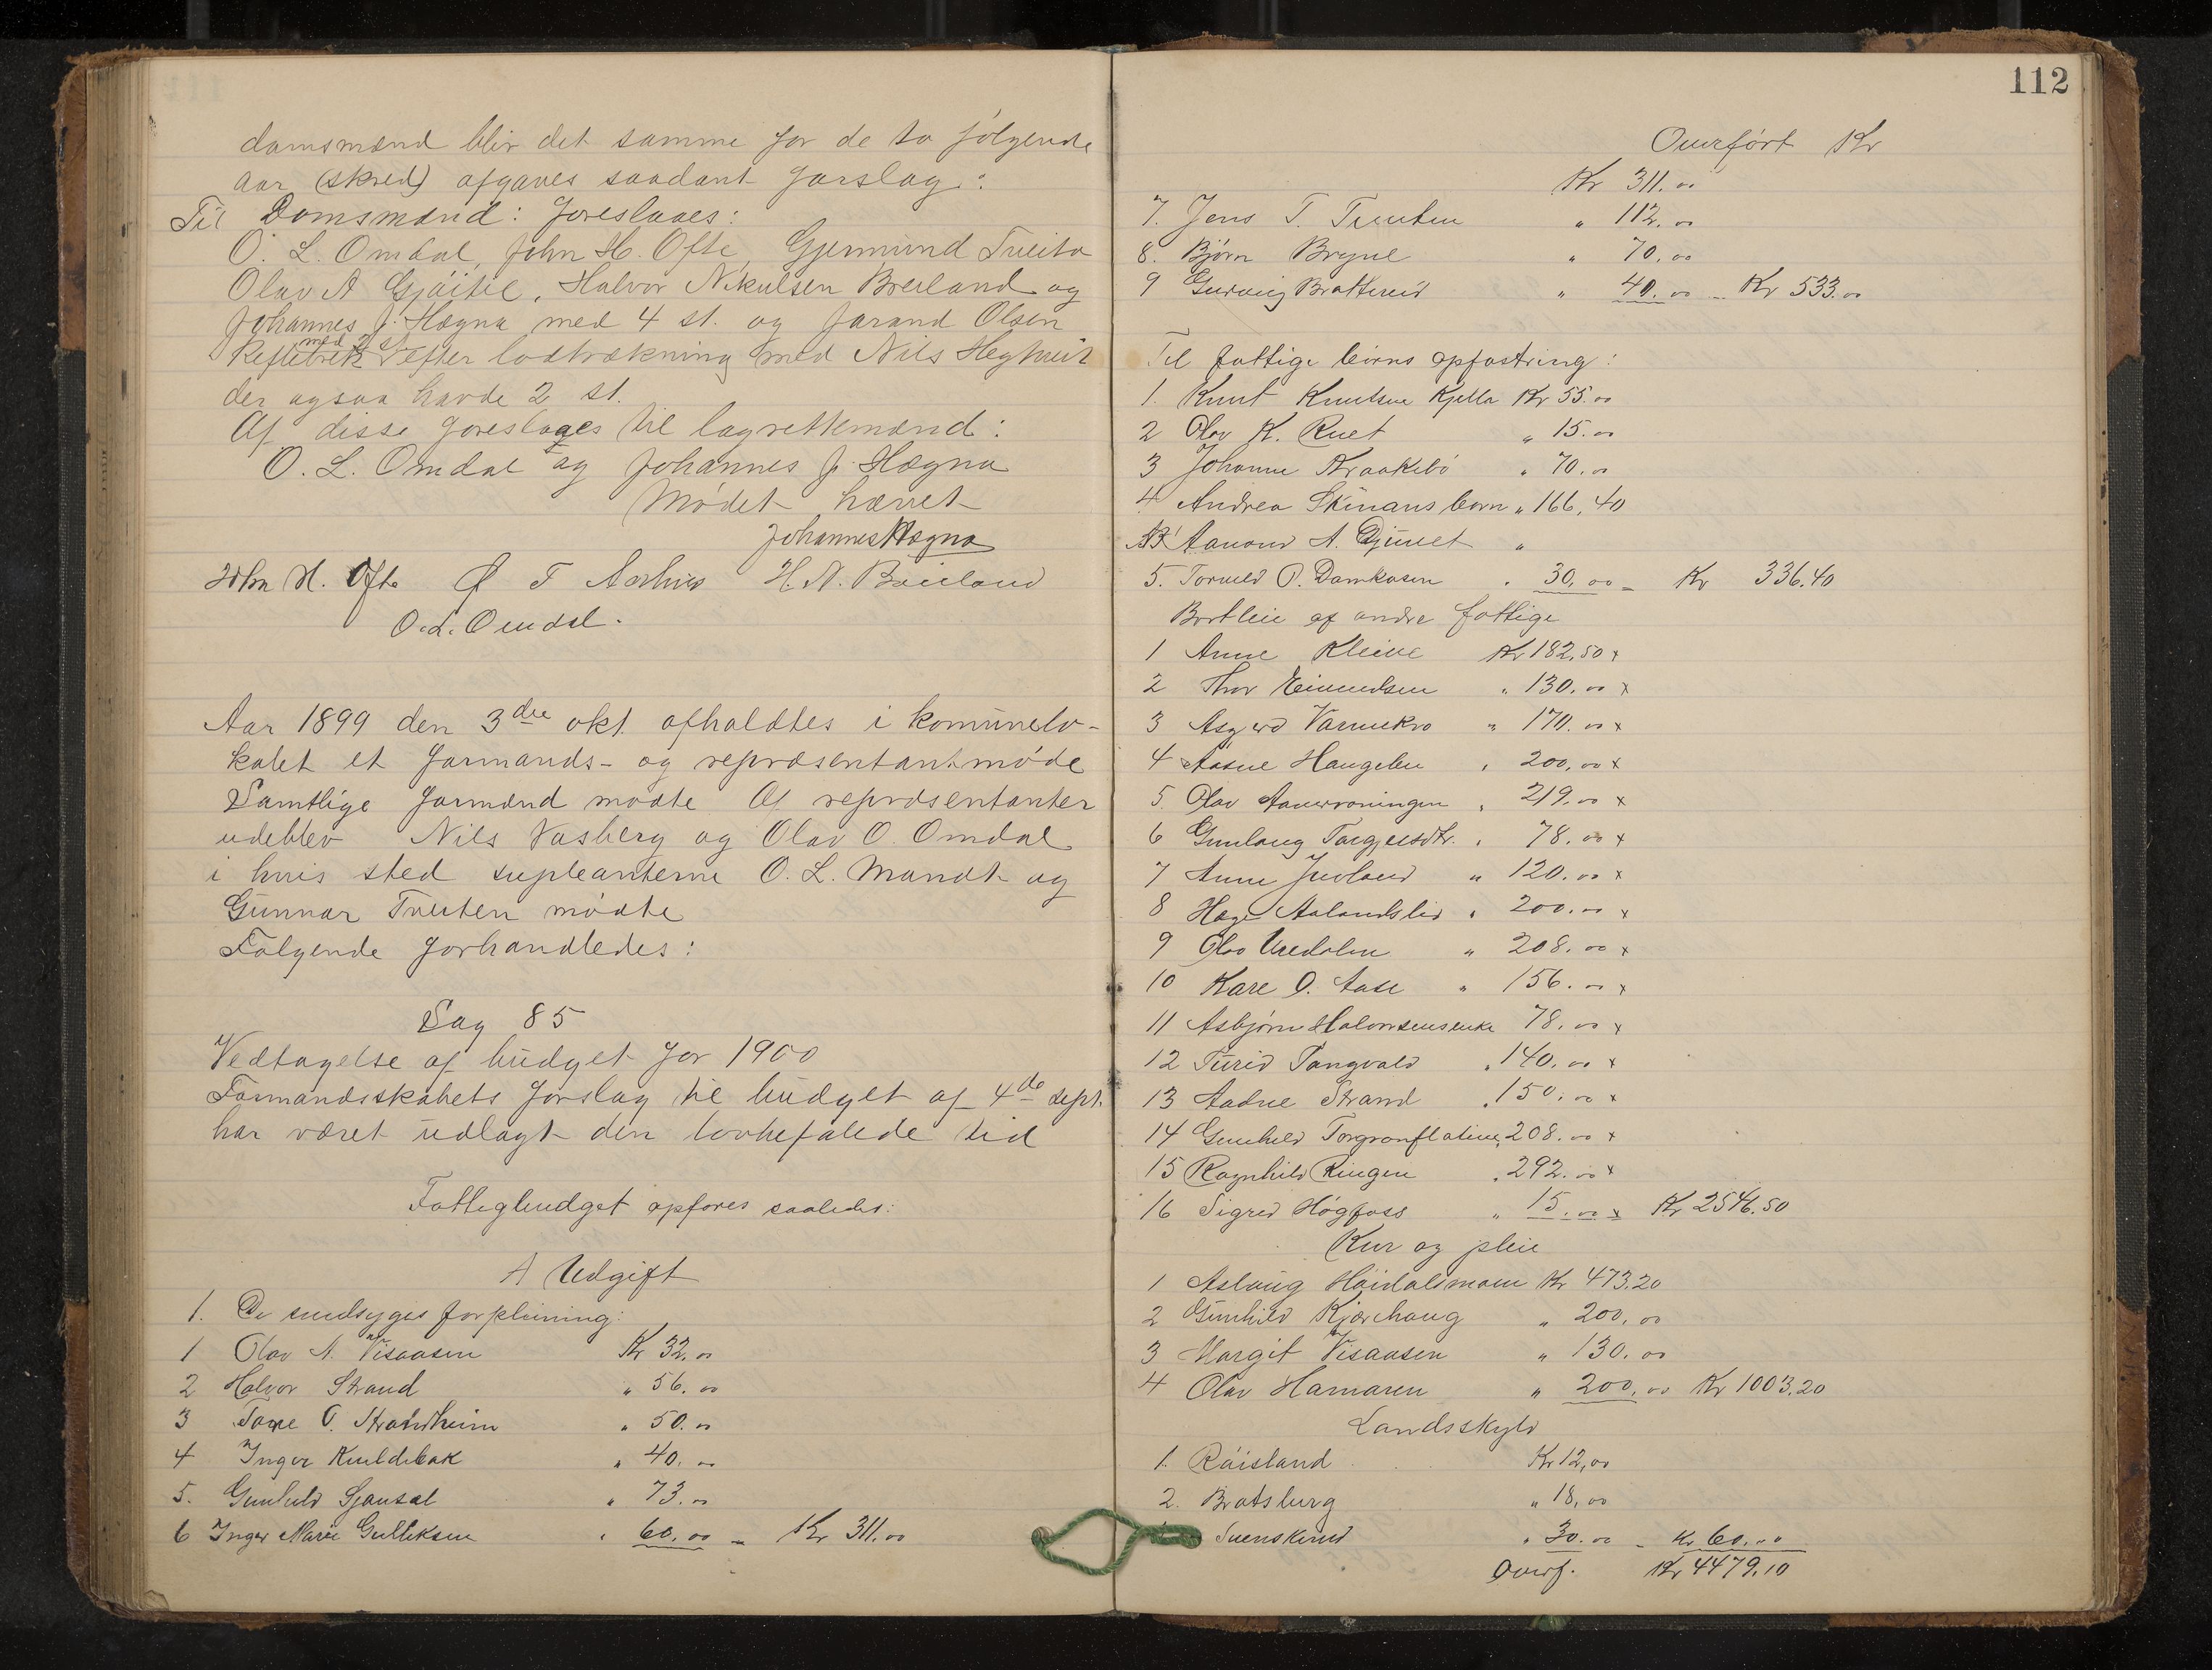 domsmænd blir det samme for de to følgende
aar (skred) afgaves saadant forslag:
Til Domsmænd: foreslaaes:
O. L. Omdal, John H. Ofte, Gjermund Tveito
Olav A Gjøitil, Halvor Nikulsen Breiland og
Johannes J. Hægna med 4 st. og Jarand Olsen
med 2 st.
efter lodtrækning med Nils Heghveit
der ogsaa havde 2 st.
Af disse foreslaaes til lagrettemænd:
O. L. Omdal og Johannes J. Hægna
Mødet hævet
Johannes Hægna
John H. Ofte Ø T Aarhus H. N. Breiland
O. L. Omdal.
Aar 1899 den 3die okt. afholdtes i komunelo-
kalet et formands- og repræsentantmøde
Samtlige formænd mødte Af repræsentanter
udeblev Nils Vasberg og Olav O. Omdal
i hvis sted supleanterne O. L. Mandt og
Gunnar Tveiten mødte
Følgende forhandledes:
Sag 85
Vedtagelse af budget for 1900
Formandsskabets forslag til budget af 4de sept.
har været udlagt den lovbefalede tid
Fattigbudget opføres saaledes:
A Udgift
1. De sindsyges forpleining:
1 Olav N. Visaasen Kr 32.00
2 Halvor Strand " 56.00
3 Tone O. Strandheim " 50.00
4 Inger Kvildebak " 40.00
5. Gunhild Sjausæt " 73.00
6 Inger Marie Gulliksen " 60.00 - Kr 311.00
112
Overført Kr
Kr 311.00
7. Jens T. Tveiten " 112.00
8. Bjørn Brynl " 70.00
9 Gurveig Bratterud " 40.00 - Kr 533.00
Til fattige børns opfostring:
1. Knut Knutsen Kjella Kr 55.00
2 Olav K. Ruet " 15.00
3 Johanne Kraakebø " 70.00
4 Andrea Skinans børn " 166,40
Aanond A. Gjuvet "
5. Torveld O. Damkaasen " 30.00 - Kr 336.40
Bortleie af andre fattige
1 Anne Kleive Kr 182,50 x
2 Thor Eivindsen " 130.00 x
3 Asgerd Varmekro " 170.00 x
4 Aasne Haugelien " 200.00 x
5. Olav " 219.00 x
6 Gunlaug Targjeisdtr. " 78.00 x
7 Anne Juvland " 120.00 x
8 Hæge Aalandslid " 200.00 x
9 Olav Uredalen " 208.00 x
10 Kare O. Aase " 156.00 x
11 Asbjørn Halvorsens enke 78.00 x
12 Turid Tangvald " 140.00 x
13 Aadne Strand " 150.00 x
14 Gunhild Torgronflatin " 208.00 x
15 Ragnhild Ringen " 292.00 x
16 Sigrid Høgfoss " 15.00 x Kr 2546.50
Kur og pleie
1 Aslaug Høidalsmoen Kr 473.20
2 Gunhild Kjærehaug " 200.00
3 Margit Visaasen " 130.00
4 Olav Hamaren " 200.00 Kr 1003.20
Landsskyld
1. Røisland Kr 12,00
2. Bratsberg " 18,00
Svenskerud " 30.00 - Kr 60.00
Overf. Kr 4479,10